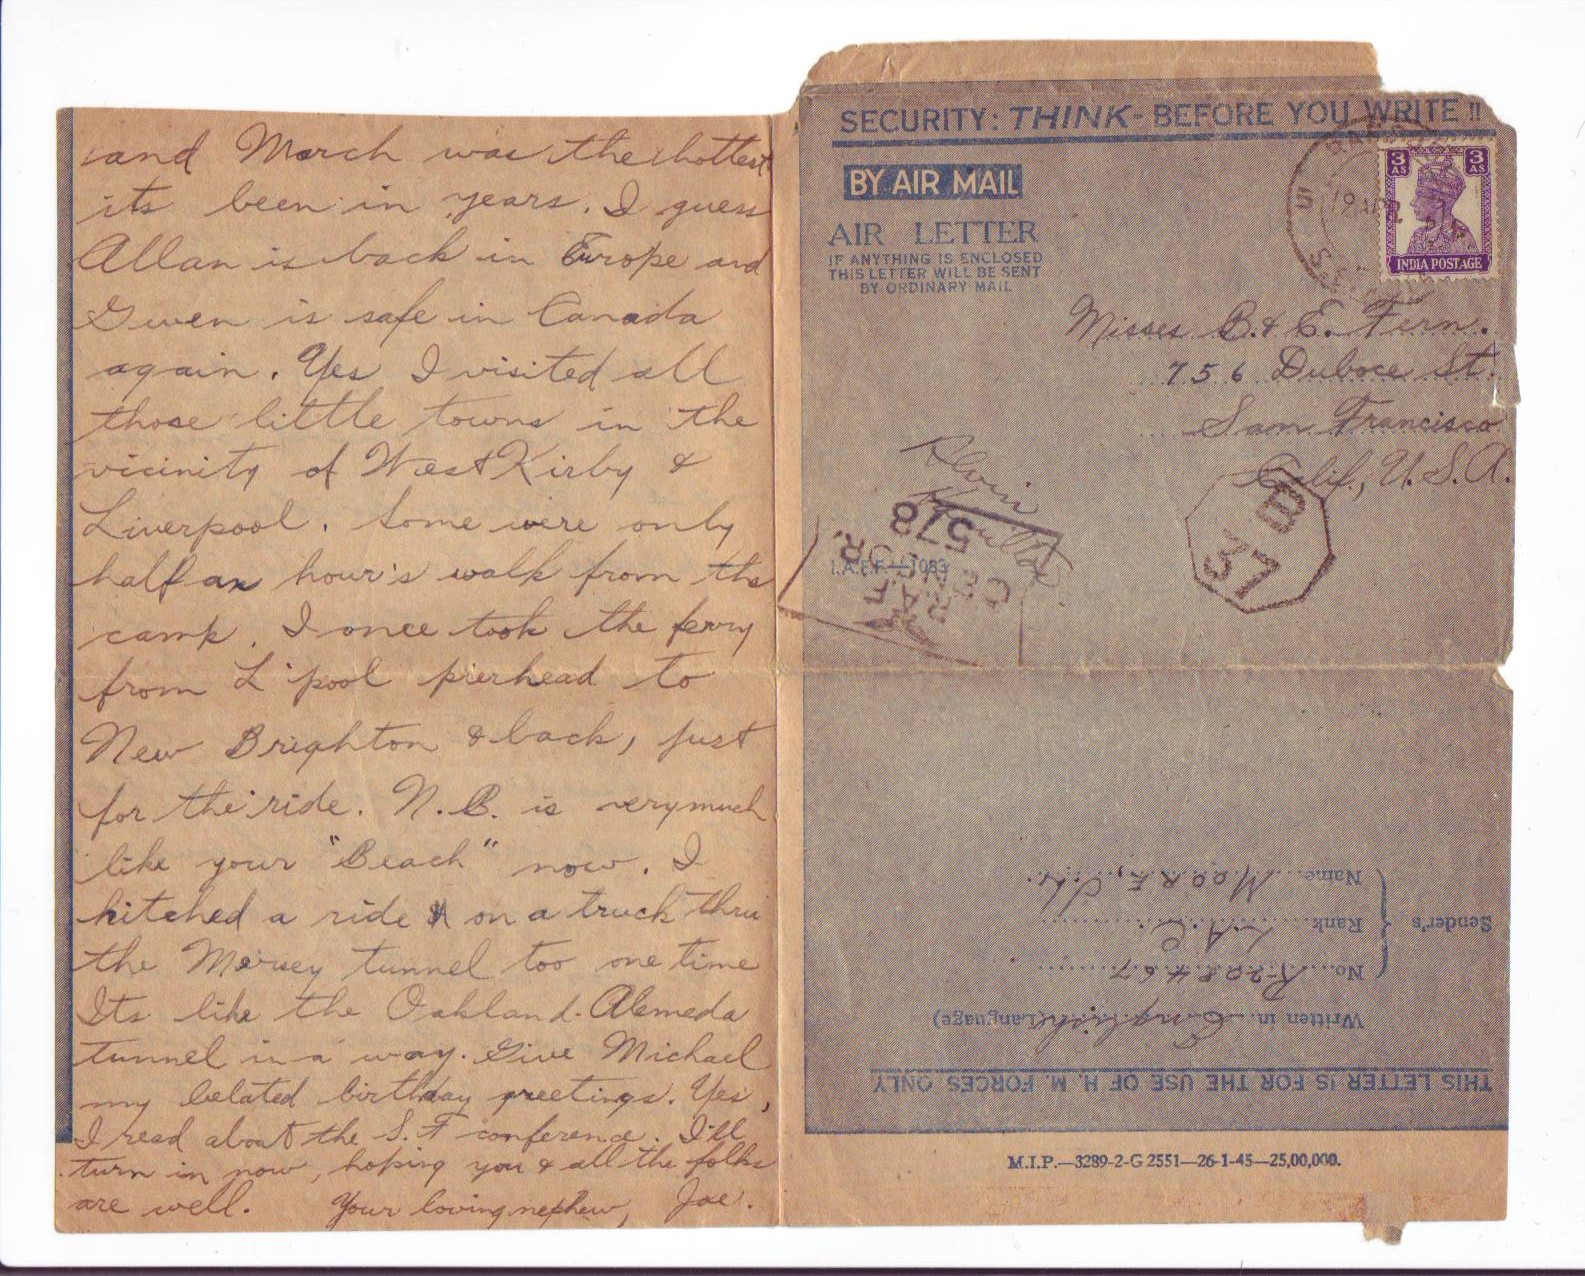 and March was the hottest
its been in years. I guess
Allan is back in Europe and
Gwen is safe in Canada
again. Yes I visited all
those little towns in the
vicinity of West Kirby &
Liverpool. Some were only
half an hour's walk from the
camp. I once took the ferry
from L'pool pierhead to
New Brighton & back, just
for the ride. N.B. is very much
like your "Beach" now. I
hitched a ride on a truck thru
the Mersey tunnel too one time
Its like the Oakland-Alemeda
tunnel in a way. Give Michael
my belated birthday greetings. Yes,
I read about the S.F conference. I'll
turn in now, hoping you & all the folks
are well. Your loving nephew, Joe.
SECURITY: THINK - BEFORE YOU WRITE !!
BY AIR MAIL
AIR LETTER
IF ANYTHING IS ENCLOSED
THIS LETTER WILL BE SENT
BY ORDINARY MAIL
3 AS 3 AS
INDIA POSTAGE
19 APR
Misses B. & E. Fern.
756 Duboce St.
San Francisco
Calif., U.S.A.
Alvin
I.A.F.F.—1083
R.A.F.
CENSOR
578
B
37
THIS LETTER IS FOR THE USE OF H. M. FORCES ONLY
Written in English (Language)
Sender's
No. R208467
Rank L.A.C.
Name MOORE, J.W.
M.I.P.—3289-2-G 2551—26-1-45—25,00,000.